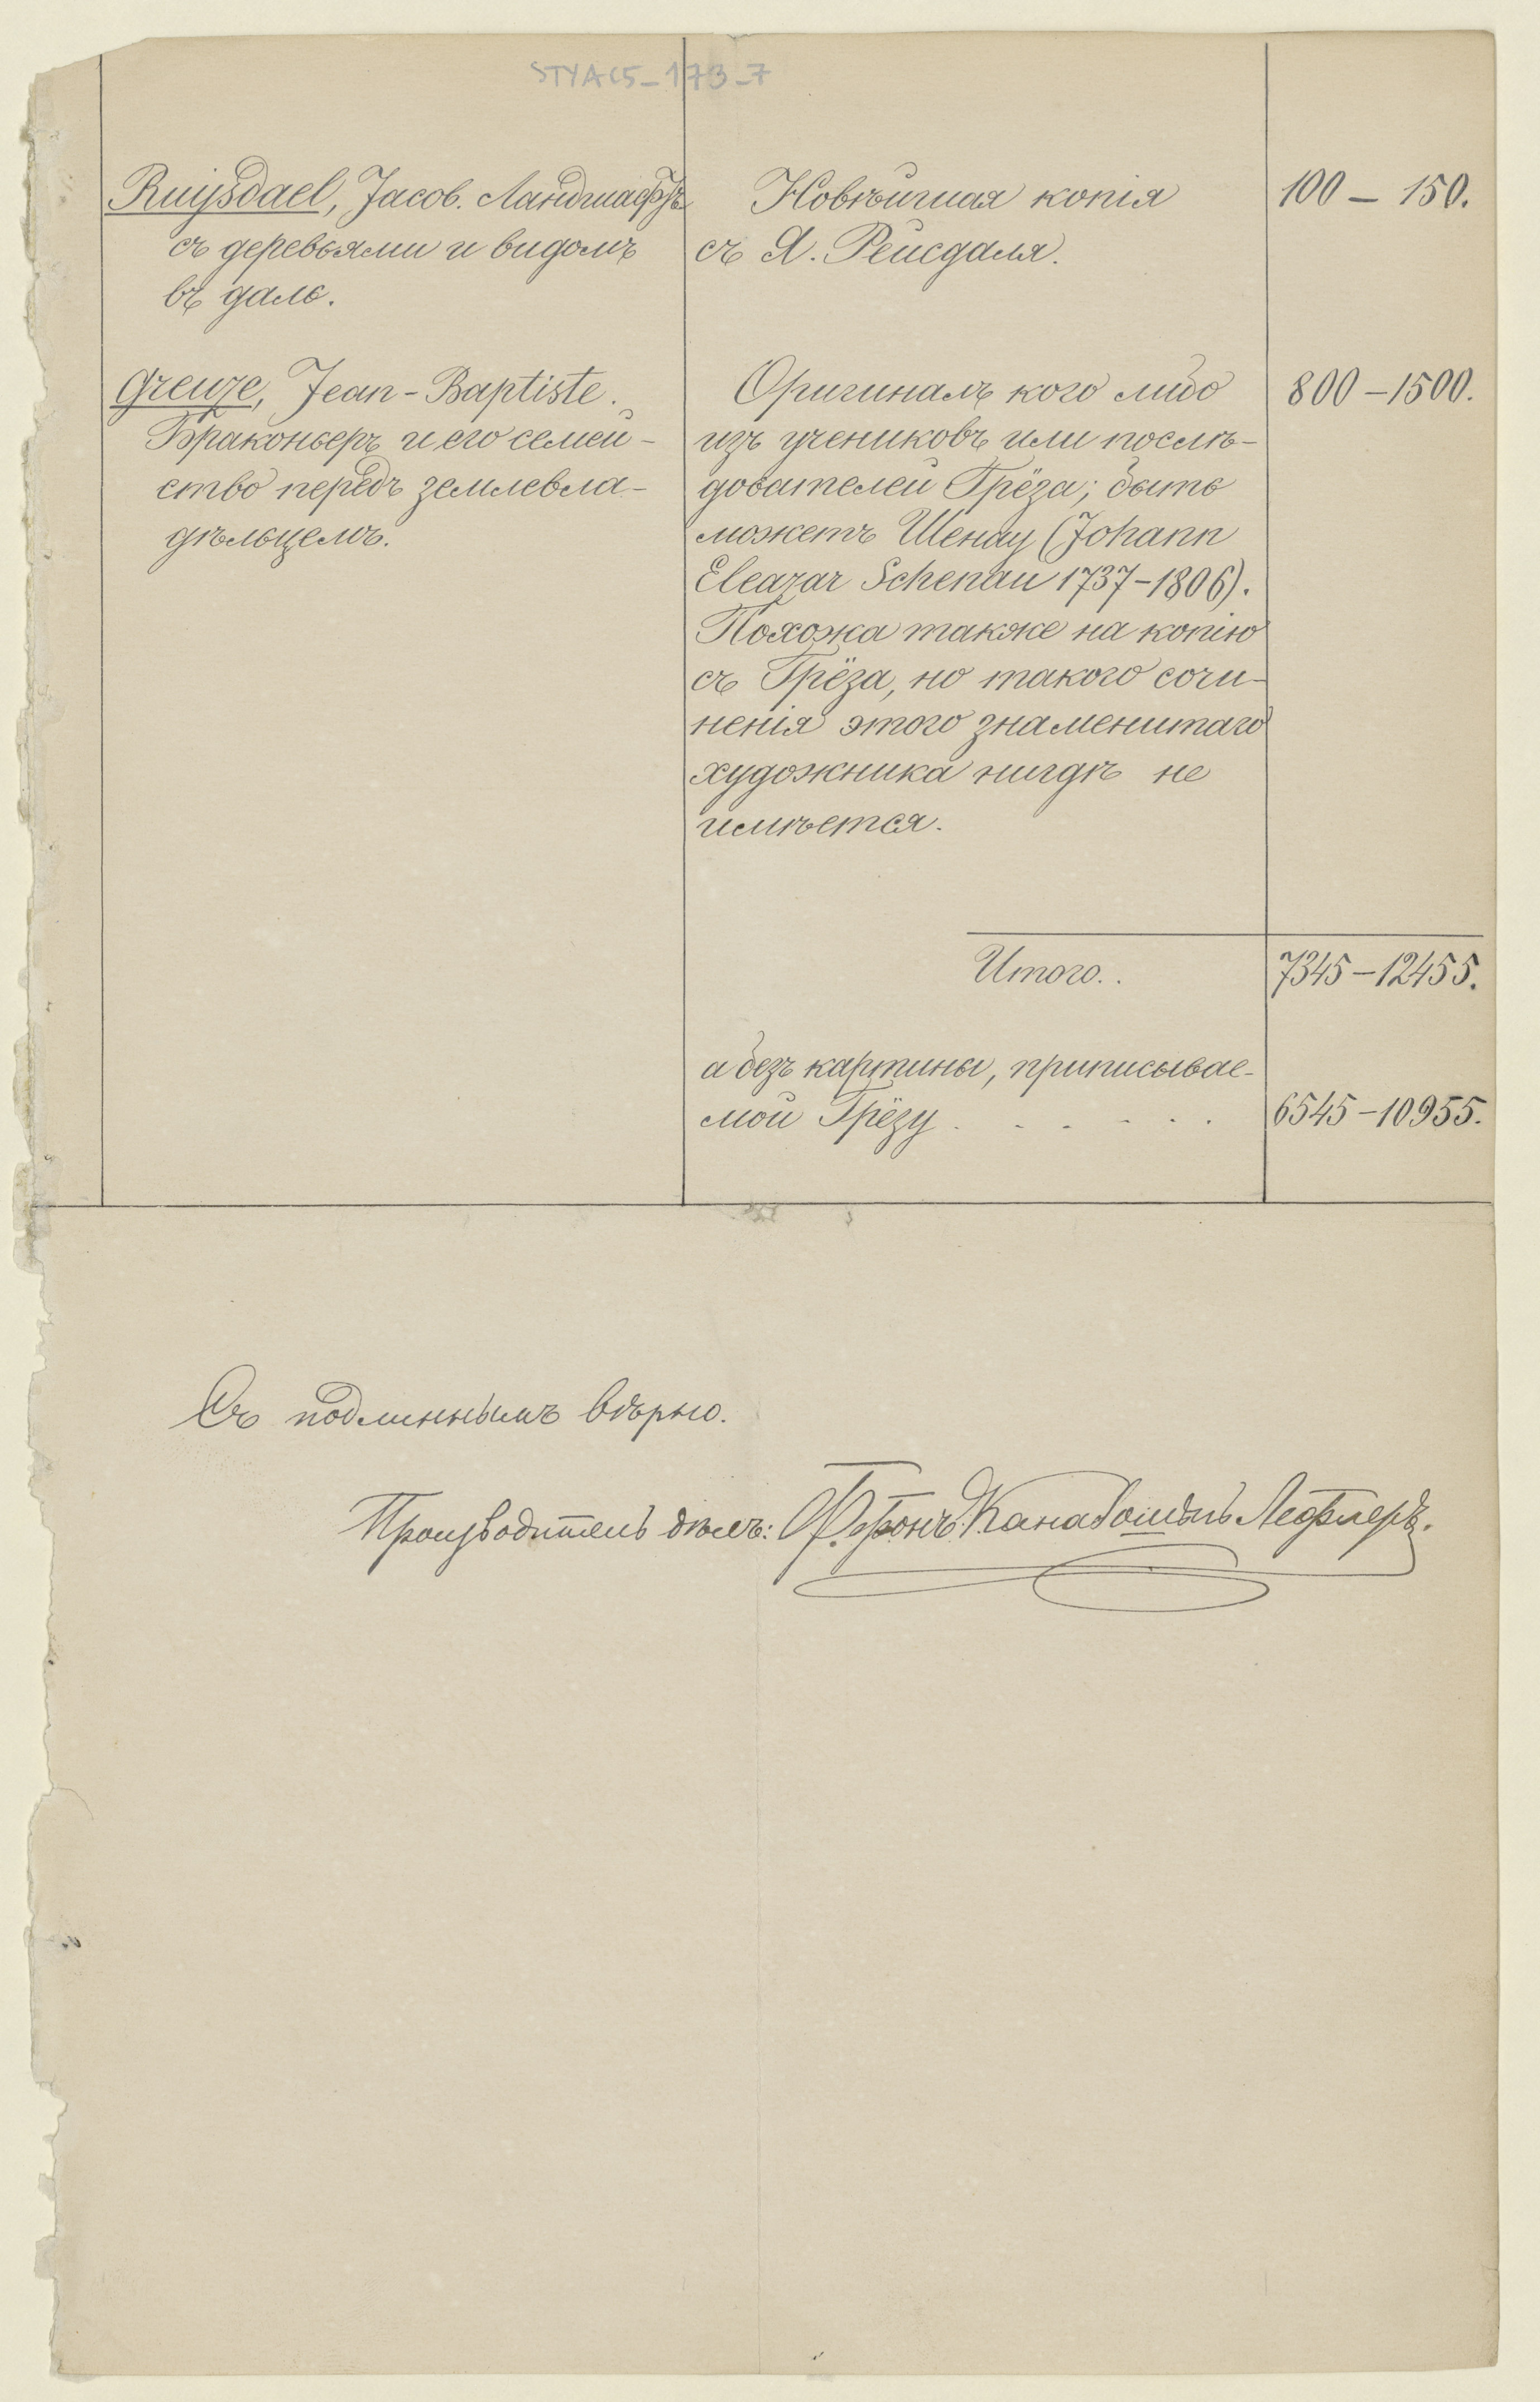 STYAC5_173_7
Ruijsdael, Jacob. Ландшафтъ
съ деревьями и видомъ
въ даль.
Новѣйшая копія
съ Я. Рейсдаля.
100 – 150.
Greuze, Jean-Baptiste.
Браконьеръ и его семей-
ство передъ землевла-
дѣльцемъ.
Оригиналъ кого либо
изъ учениковъ или послѣ-
дователей Грёза; быть
можетъ Шенау (Johann
Eleazar Schenau 1737–1806).
Похожа также на копію
съ Грёза, но такого сочи-
ненія этого знаменитаго
художника нигдѣ не
имѣется.
800 – 1500.
Итого..
7345 – 12455.
а безъ картины, приписывае-
мой Грёзу . . . . . .
6545 – 10955.
Съ подлиннымъ вѣрно.
Производитель дѣлъ: